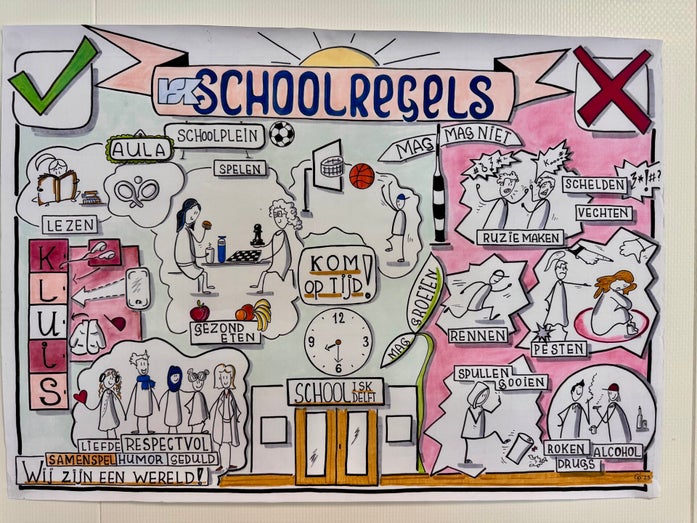 ISK SCHOOLREGELS
AULA
SCHOOLPLEIN
SPELEN
LEZEN
KLUIS
GEZOND
ETEN
KOM
OP TIJD!
12
3
6
9
MAG
MAG NIET
MAG GROETEN
SCHELDEN
3*!#?
VECHTEN
RUZIE MAKEN
RENNEN
PESTEN
SPULLEN
GOOIEN
ROKEN
ALCOHOL
DRUGS
SCHOOL ISK
DELFT
LIEFDE RESPECTVOL
SAMENSPEL HUMOR GEDULD
WIJ ZIJN EEN WERELD!